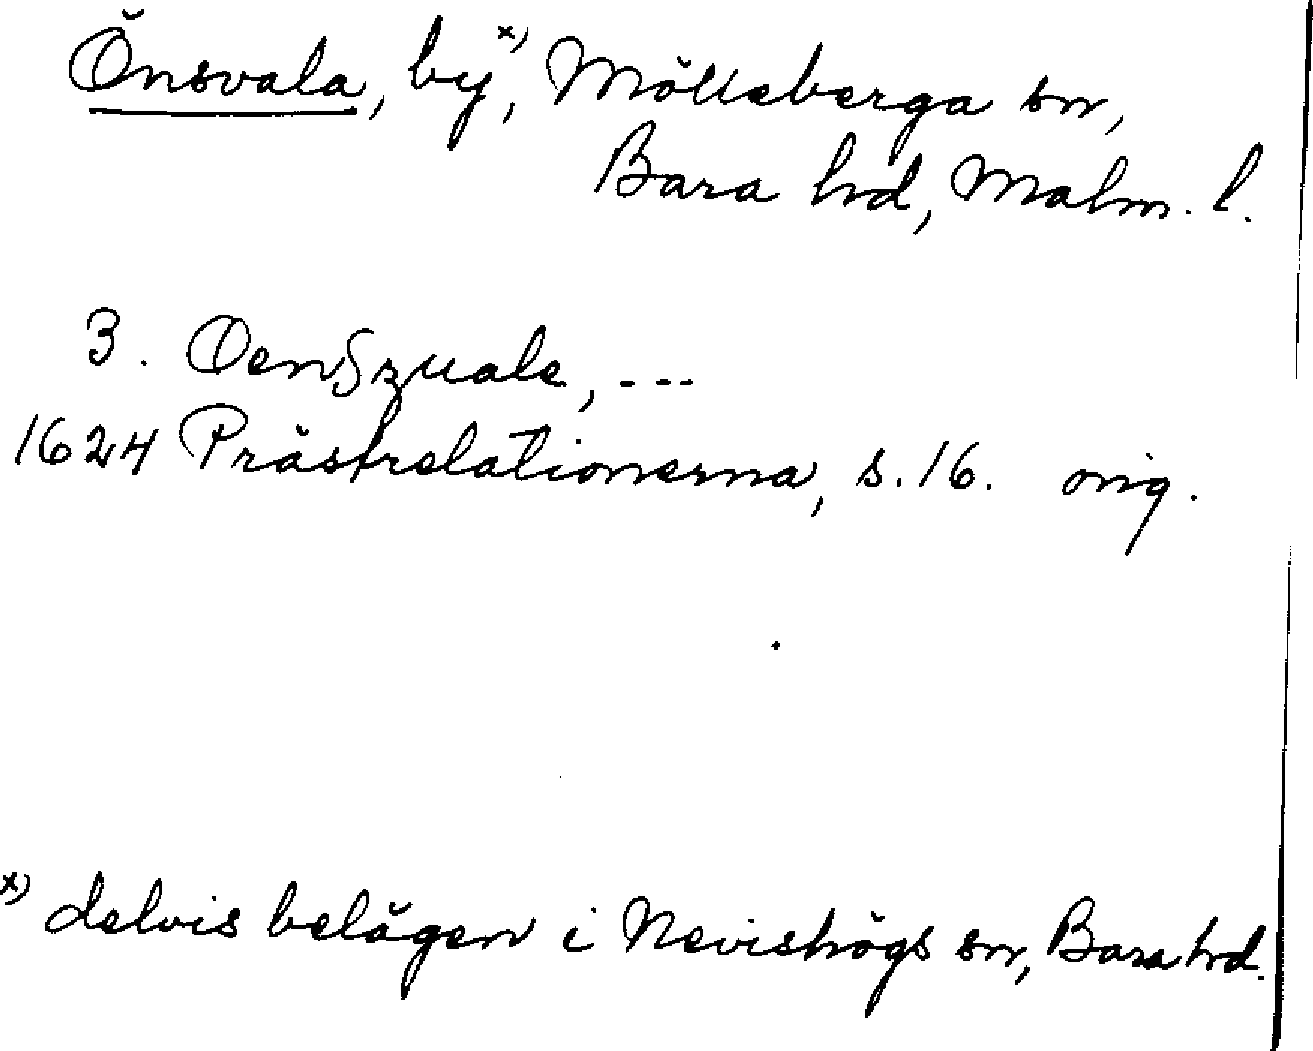 Önsvala, by x), Mölleberga sn,
Bara hd, Malm. l.
3. Oenszuale, ---
1624 Prästrelationerna, s. 16. orig.
x) delvis belägen i Nevishögs sn, Bara hd.